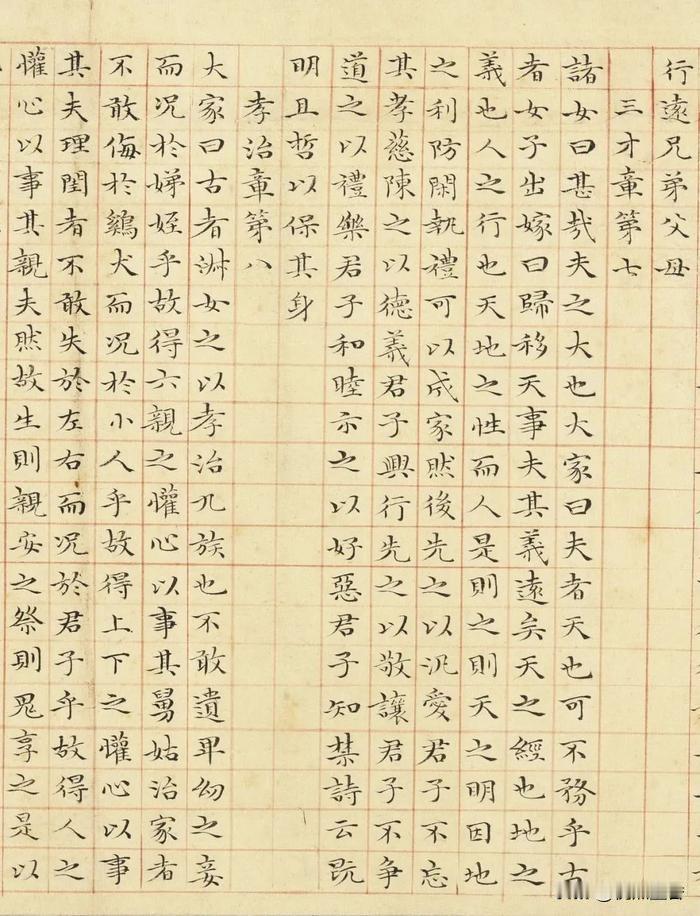 行遠兄弟父母
三才章第七
諸女曰甚哉夫之大也大家曰夫者天也可不務乎古
者女子出嫁曰歸移天事夫其義遠矣天之經也地之
義也人之行也天地之性而人是則之則天之明因地
之利防閑執禮可以成家然後先之以汎愛君子不忘
其孝慈陳之以德義君子興行先之以敬讓君子不爭
道之以禮樂君子和睦示之以好惡君子知禁詩云既
明且哲以保其身
孝治章第八
大家曰古者淑女之以孝治九族也不敢遺卑幼之妾
而况於娣姪乎故得六親之懽心以事其舅姑治家者
不敢侮於鷄犬而况於小人乎故得上下之懽心以事
其夫理閨者不敢失於左右而况於君子乎故得人之
懽心以事其親夫然故生則親安之祭則鬼享之是以